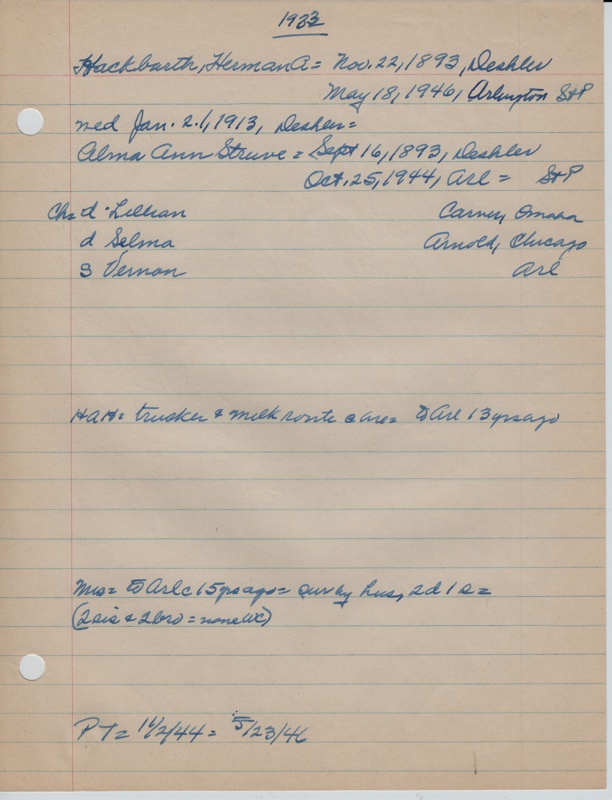 1933
Hackbarth, Herman A = Nov. 22, 1893, Deshler
May 18, 1946, Arlington St P
wed Jan. 21, 1913, Deshler =
Alma Ann Struve = Sept 16, 1893, Deshler
Oct. 25, 1944, Arl = St P
Ch = d Lillian Carney, Omaha
d Selma Arnold, Chicago
s Vernon Arl
HAH = trucker & milk route c are = to Arl 13 yrs ago
Mrs = to Arl c 15 yrs ago = surv by hus, 2 d 1 s =
(2 sis & 2 bro = none WC)
PT = 11/2/44 = 5/23/46